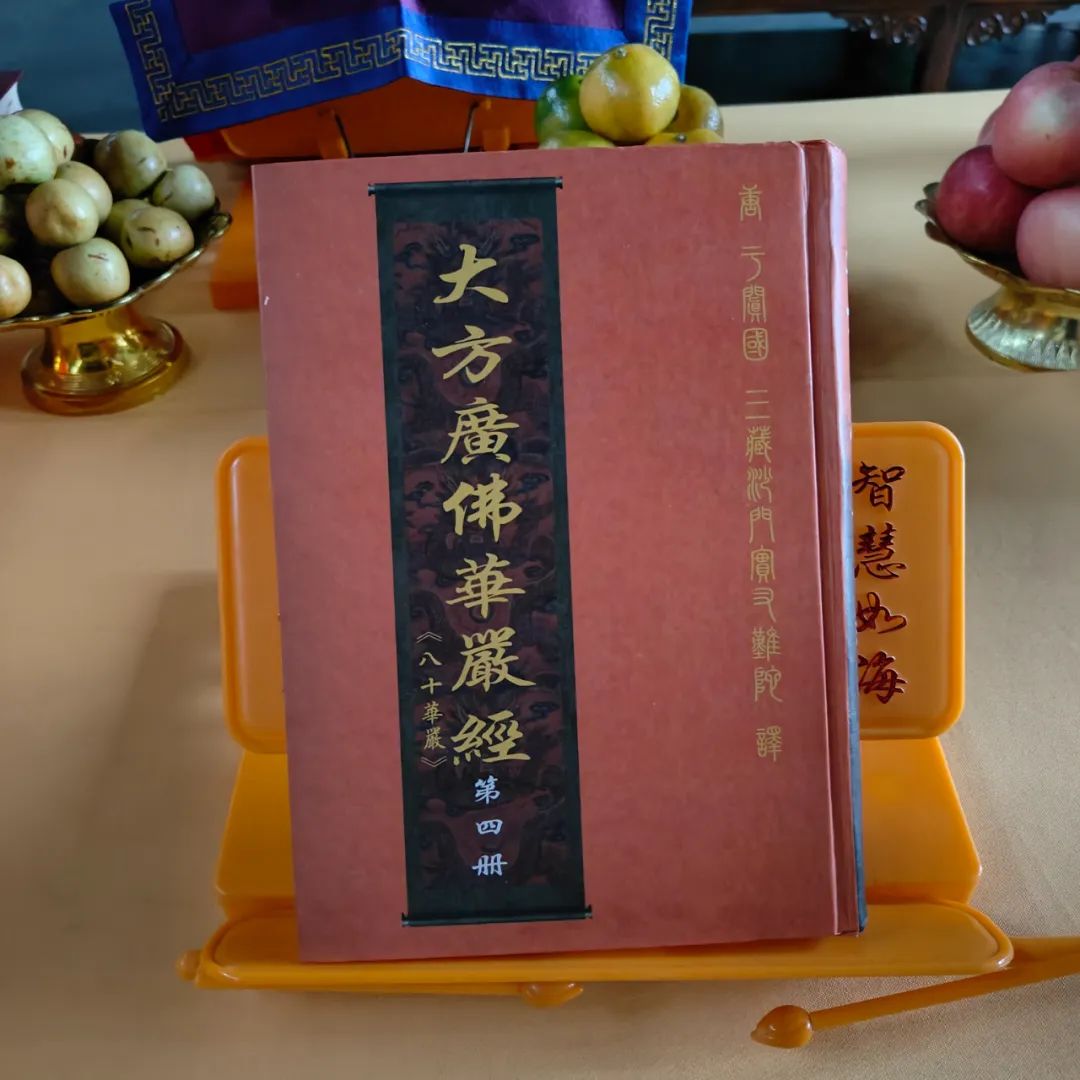 大方廣佛華嚴經
《八十華嚴》
第四冊
唐 于闐國 三藏沙門實叉難陀 譯
智慧如海